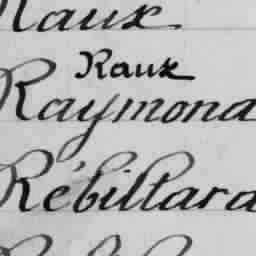 Raux
Raux
Raymond
Rébillard